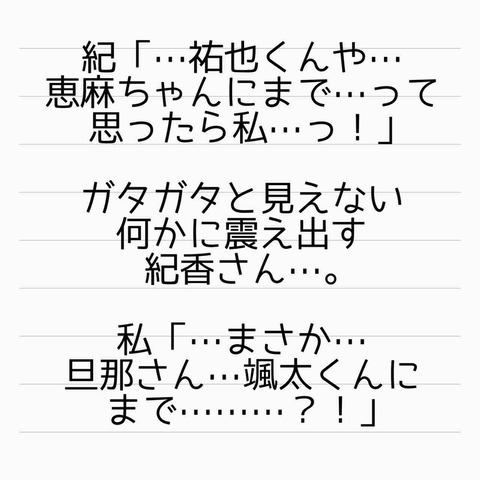 紀「…祐也くんや…
恵麻ちゃんにまで…って
思ったら私…っ！」
ガタガタと見えない
何かに震え出す
紀香さん…。
私「…まさか…
旦那さん…颯太くんに
まで………？！」